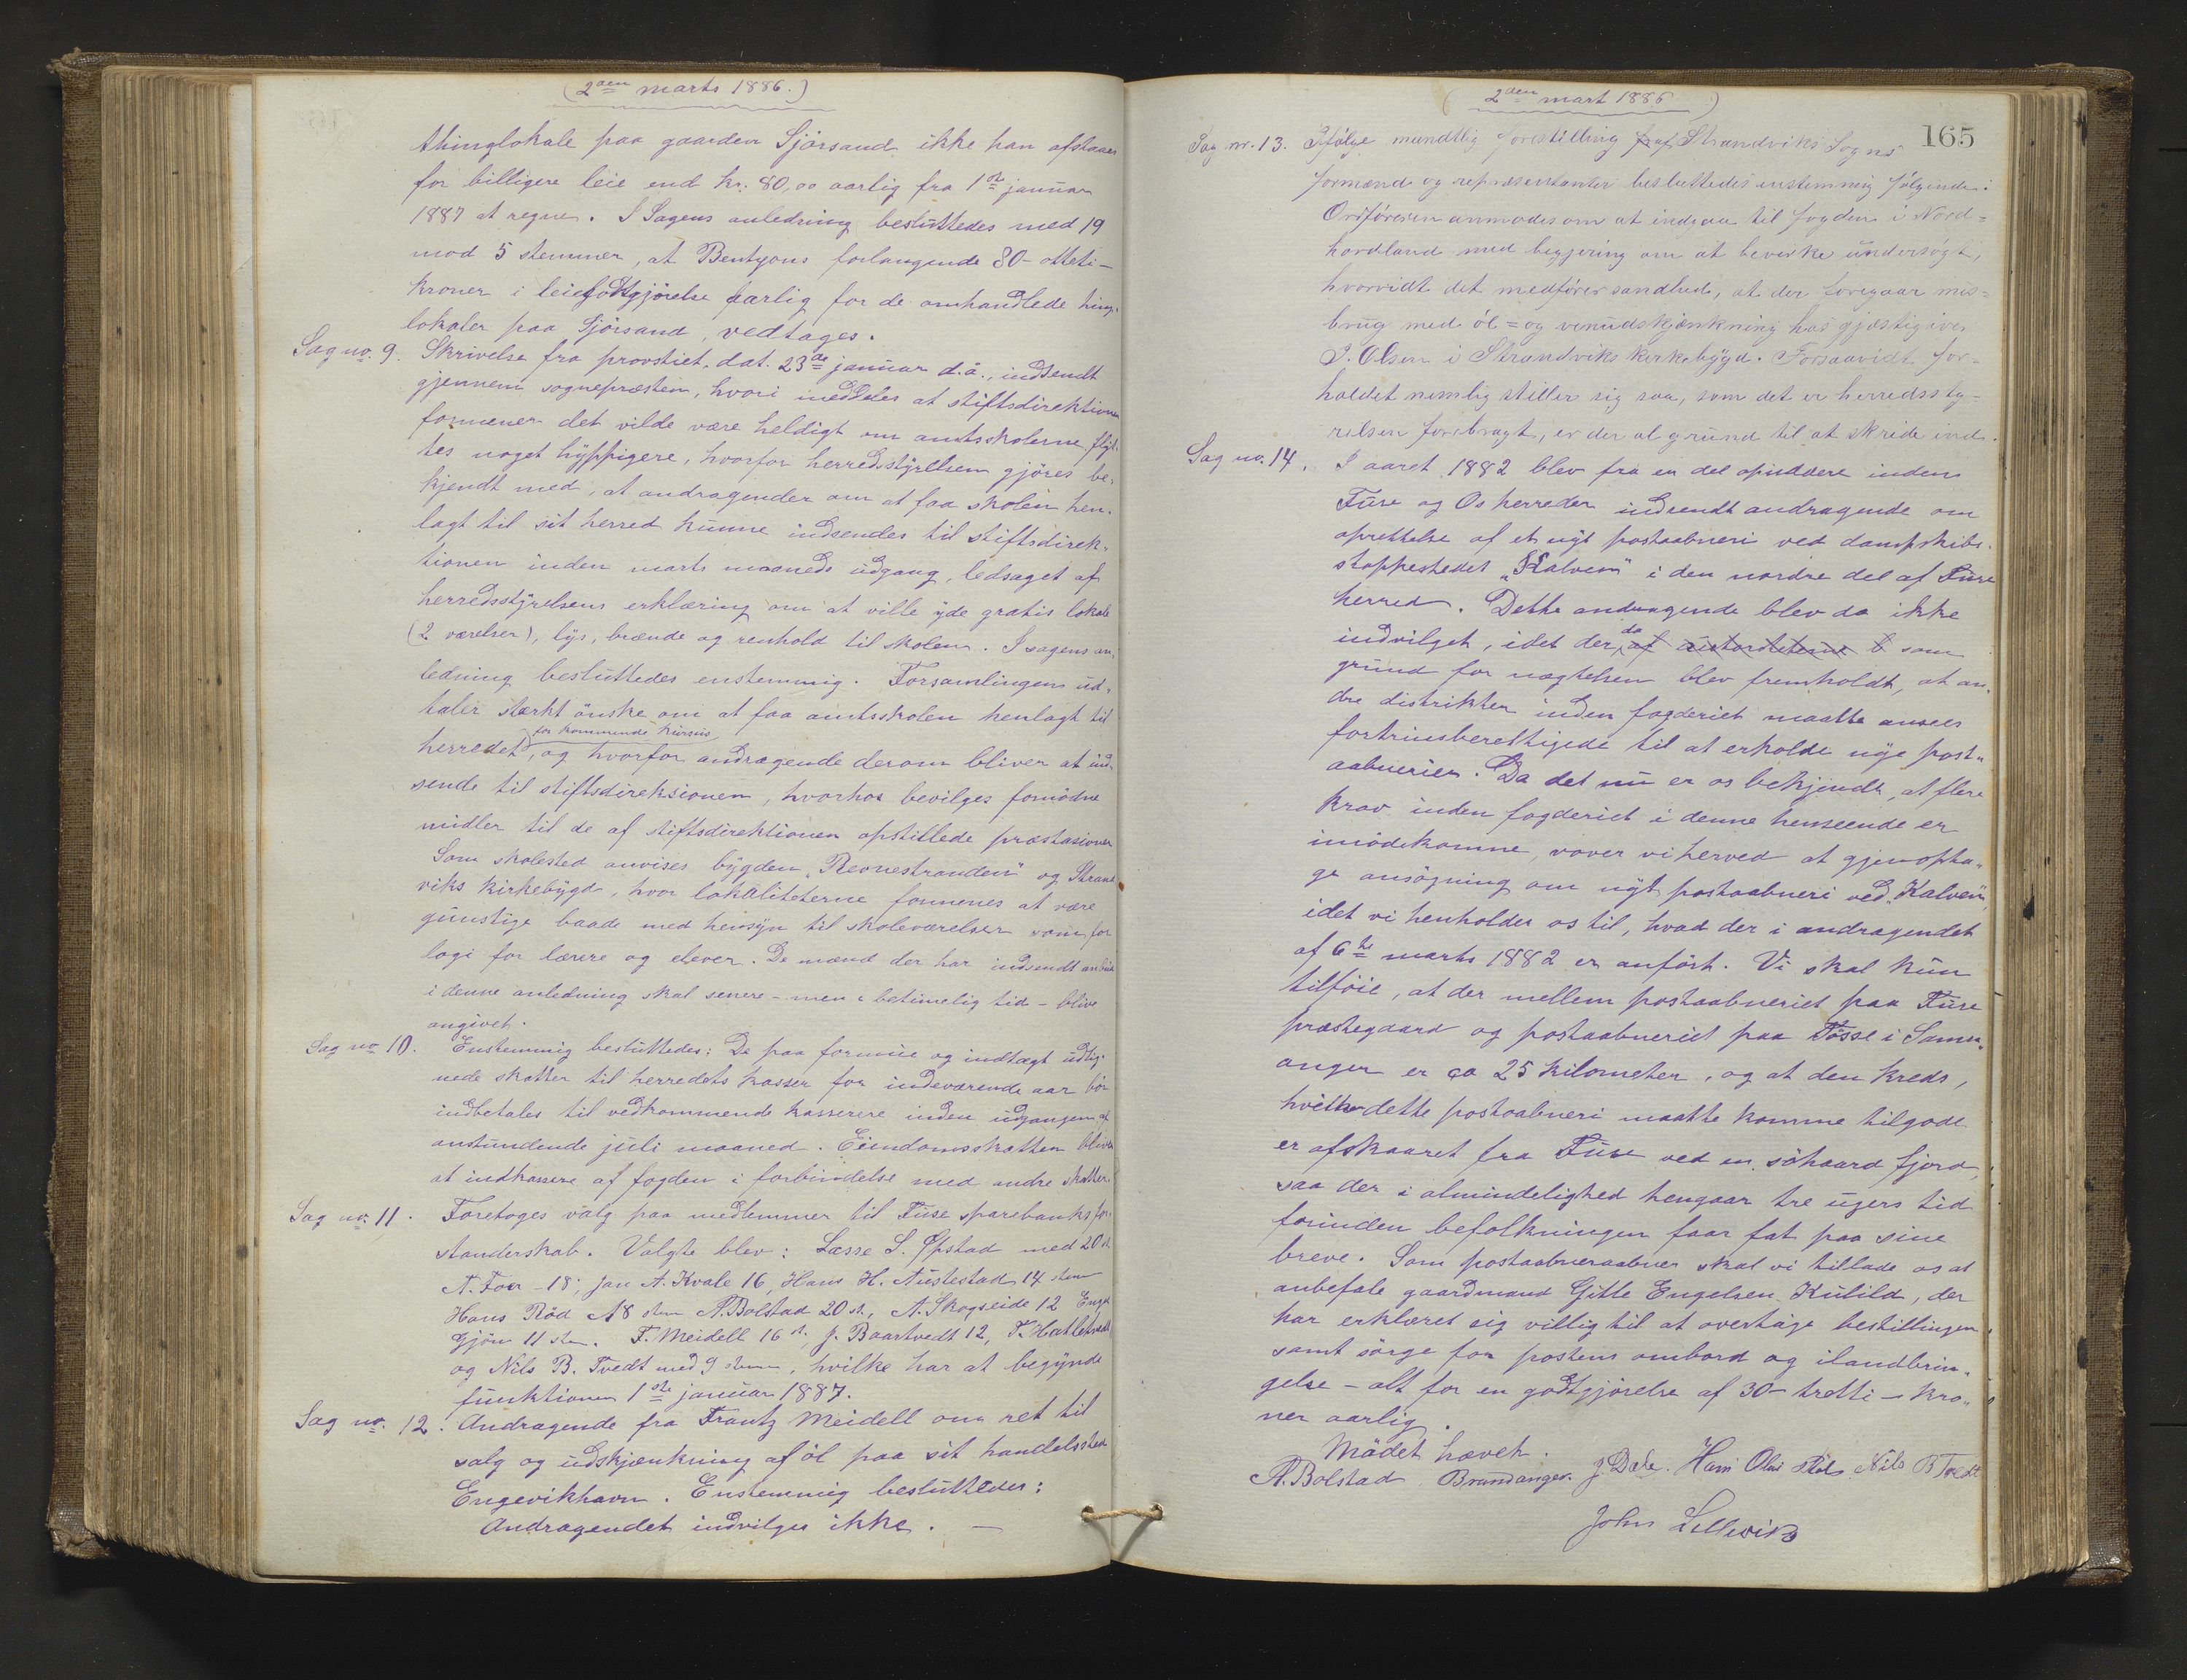 (2den marts 1886.)
thinglokale paa gaarden Sjörsand ikke kan afstaaes
for billigere leie end kr: 80,00 aarlig fra 1ste januar
1887 at regne. I Sagens anledning besluttedes med 19
mod 5 stemmer, at Bentzons forlangende 80 - otteti -
kroner i leiegodtgjörelse aarlig for de omhandlede thing-
lokaler paa Sjörsand, vedtages.
Sag no. 9. Skrivelse fra provstiet, dat. 23de januar d.å., indsendt
gjennem sognepræsten, hvori meddeles at stiftsdirektionen
formener det vilde være heldigt om amtsskolerne flyt-
tes noget hyppigere, hvorfor herredsstyrelsen gjöres be-
kjendt med, at andragender om at faa skolen hen-
lagt til sit herred kunne indsendes til stiftsdirek-
tionen inden marts maaneds udgang, ledsaget af
herredsstyrelsens erklæring om at ville yde gratis lokale
(2 værelser), lys, brænde og renhold til skolen. I sagens an-
ledning besluttedes enstemmig. Forsamlingen ud-
taler stærkt önske om at faa amtsskolen henlagt til
for kommende kursus
herredet, og hvorfor andragende derom bliver at ind-
sende til stiftsdireksionen, hvorhos bevilges fornödne
midler til de af stiftsdirektionen opstillede præstasioner
Som skolested anvises bygden "Revnestranden" og Strand
viks kirkebygd, hvor lokaliteterne formenes at være
gunstige baade med hensyn til skoleværelser som for
logi for lærere og elever. De mænd der har indsendt anbud
i denne anledning skal senere - men i betimelig tid - blive
angivet.
Sag no 10. Enstemmig besluttedes: De paa formue og indtægt udlig-
nede skatter til herredets kasser for indeværende aar bör
indbetales til vedkommende kasserere inden udgangen af
anstundende juli maaned. Eiendomsskatten bliver
at indkassere af fogden i forbindelse med andre skatter.
Sag no. 11. Foretoges valg paa medlemmer til Fuse sparebanks for-
standerskab. Valgte blev: Lasse L. Öpstad med 20 st.
N. Foer - 18; Jan A. Kvale 16, Hans H. Austestad 14 stem
Hans Röd 18 stm N. Bolstad 20 st., A. Skogseide 12 Engel
Gjön 11 stm. F. Meidell 16 st, J. Baartvedt 12, T. Hatletvedt
og Nils B. Tvedt med 9 stemmer, hvilke har at begynde
funktionen 1ste januar 1887.
Sag no. 12. Andragende fra Frantz Meidell om ret til
salg og udskjænkning af öl paa sit handelssted
Engevikhavn. Enstemmig besluttedes:
Andragendet indvilges ikke. -
165
(2den mart 1886)
Sag nr. 13. Ifölge mundtlig forestilling af Strandviks Sogns
formænd og repræsentanter besluttedes enstemmig fölgende:
Ordföreren anmodes om at indgaa til fogden i Nord=
hordland med begjering om at bevirke undersögt,
hvorvidt det medförer sandhed, at der foregaar mis=
brug med öl= og vinudskjænkning hos gjæstgiver
I. Olsen i Strandviks kirkebygd. Forsaavidt for=
holdet nemlig stiller sig saa, som det er herredssty=
relsen forebragt, er der al grund til at skride ind.
Sag no. 14. I aaret 1882 blev fra en del opsiddere inden
Fuse og Os herreder indsendt andragende om
oprettelse af et nyt postaabneri ved dampskibs-
stoppestedet "Kalven" i den nordre del af Fuse
herred. Dette andragende blev da ikke
indvilget, idet der, da af autoriteterne b som
grund for nægtelsen blev fremholdt, at an-
dre distrikter inden fogderiet maatte ansees
fortrinsberettigede til at erholde nye post-
aabnerier. Da det nu er os bekjendt, at flere
krav inden fogderiet i denne henseende er
imödekomne, vover vi herved at gjenopta-
ge ansögning om nyt postaabneri ved "Kalven",
idet vi henholder os til, hvad der i andragendet
af 6te marts 1882 er anfört. Vi skal kun
tilföie, at der mellem postaabneriet paa Fuse
præstegaard og postaabneriet paa Tösse i Samn-
anger er ca 25 kilometer, og at den kreds,
hvilken dette postaabneri maatte komme tilgode
er afskaaret fra Fuse ved en söhaard fjord,
saa der i almindelighed hengaar tre ugers tid
forinden befolkningen faar fat paa sine
breve. Som postaabneraabner skal vi tillade os at
anbefale gaardmand Gitle Engelsen Kulild, der
har erklæret sig villig til at overtage bestillingen
samt sörge for postens ombord og ilandbrin-
gelse - alt for en godtgjörelse af 30 - tretti - kro-
ner aarlig.
Mödet hævet.
N. Bolstad Brandanger. J Dale. Hans Olai Nils B Tvedt
John Lellevik